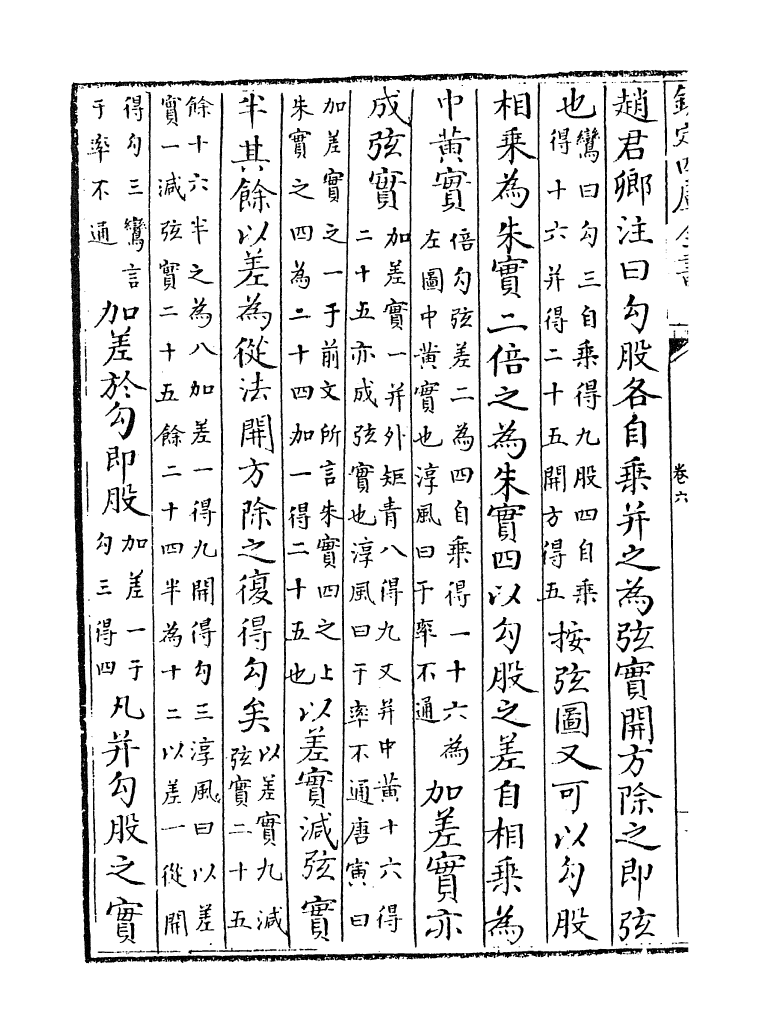 欽定四庫全書
卷六
趙君卿注曰勾股各自乘并之為弦實開方除之即弦
也鸞曰勾三自乘得九股四自乘得十六并得二十五開方得五按弦圖又可以勾股
相乘為朱實二倍之為朱實四以勾股之差自相乘為
中黃實倍勾弦差二為四自乘得一十六為左圖中黃實也淳風曰于率不通加差實亦
成弦實加差實一并外矩青八得九又并中黃十六得二十五亦成弦實也淳風曰于率不通唐寅曰
加差實之一于前文所言朱實四之上朱實之四為二十四加一得二十五也以差實減弦實
半其餘以差為從法開方除之復得勾矣以差實九減弦實二十五
餘十六半之為八加差一得九開得勾三淳風曰以差實一減弦實二十五餘二十四半為十二以差一從開
得勾三鸞言于率不通加差於勾即股加差一于勾三得四凡并勾股之實